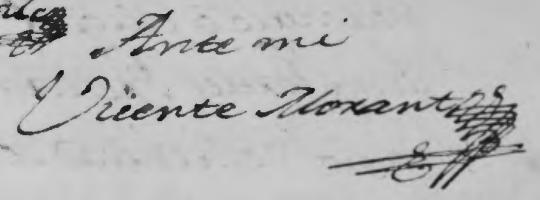 Ante mi
Vicente Morant